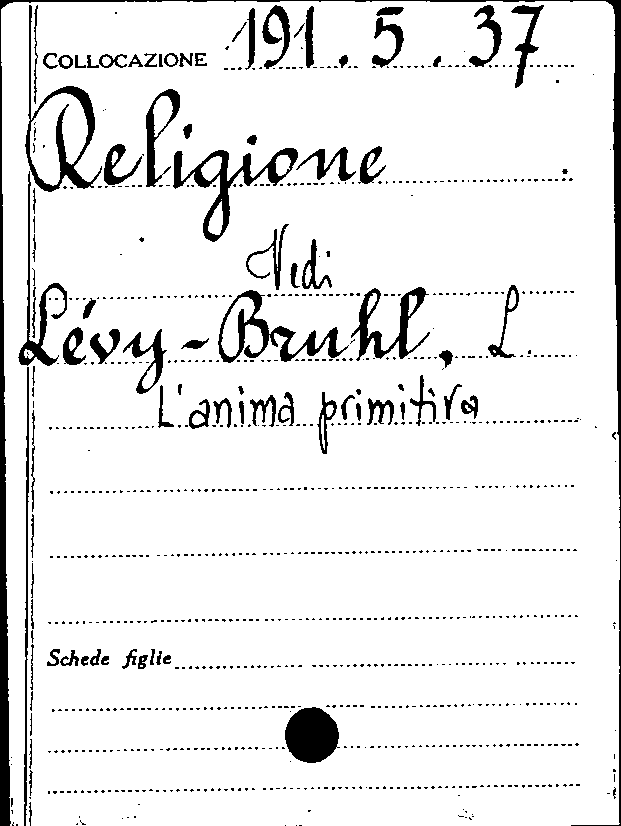 COLLOCAZIONE 191.5.37
Religione
Vedi
Lévy-Bruhl, L.
L'anima primitiva
Schede figlie